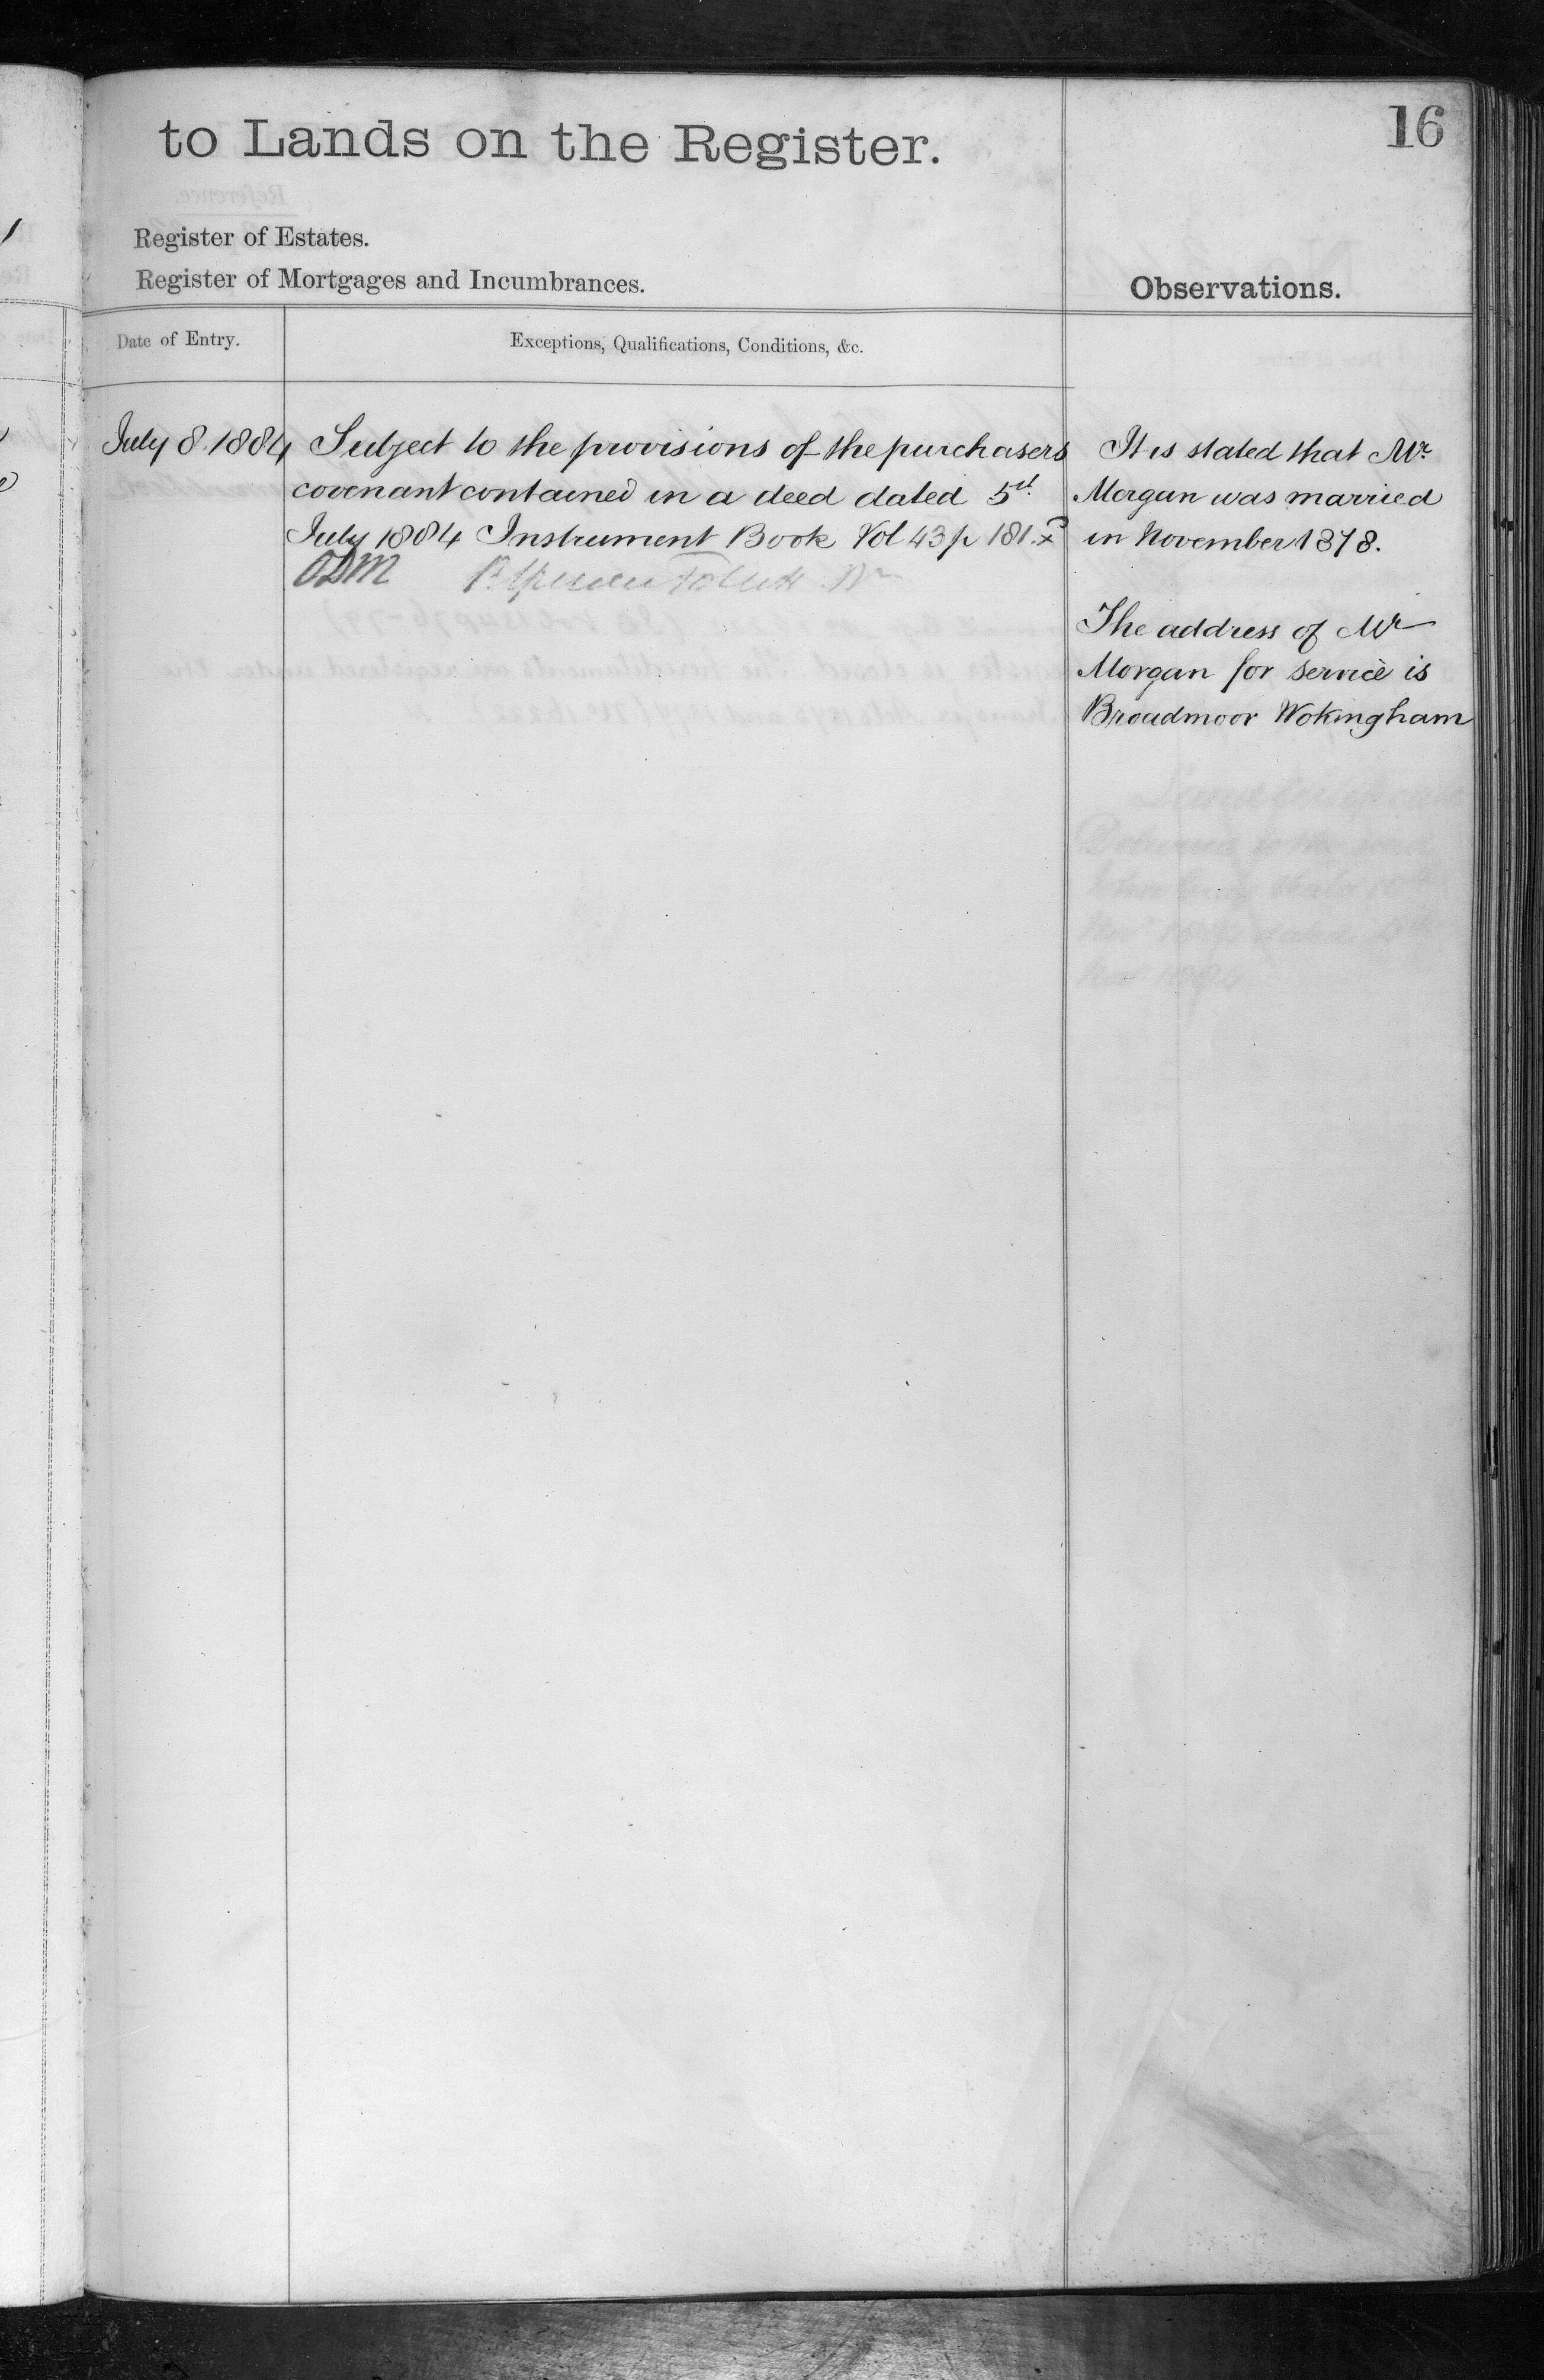 16
to Lands on the Register.
Register of Estates.
Register of Mortgages and Incumbrances.
Observations.
Date of Entry.
Exceptions, Qualifications, Conditions, &c.
July 8. 1884
Subject to the provisions of the purchasers
covenant contained in a deed dated 5th
July 1884 Instrument Book Vol 43 p 181. x
ODM
It is stated that Mr
Morgan was married
in November 1878.
The address of Mr
Morgan for service is
Broadmoor Wokingham